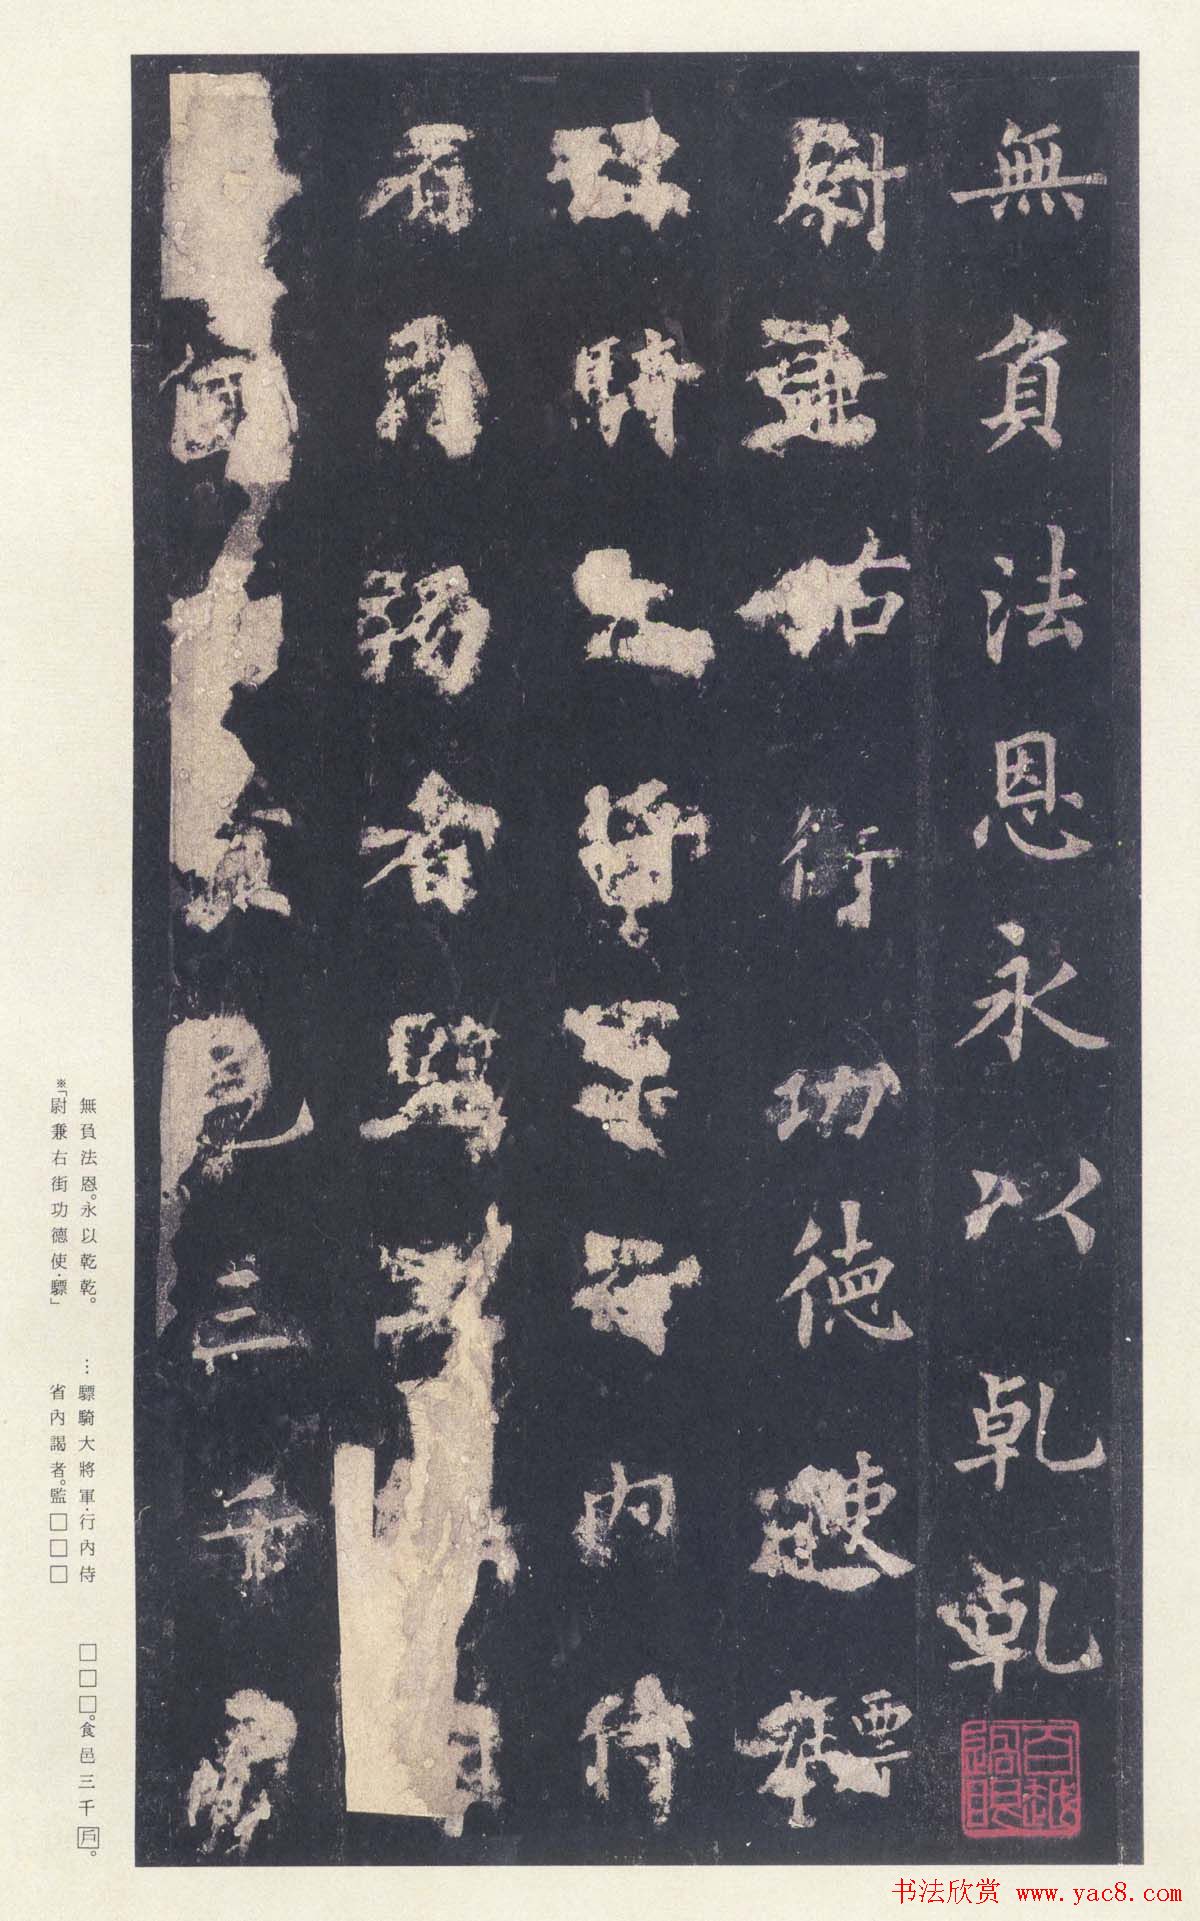 無負法恩永以乾乾
尉兼右街功德使驃
騎大將軍行內侍
省內謁者監
食邑三千
無負法恩。永以乾乾。
※「尉兼右街功德使·驃」
…驃騎大將軍·行內侍
省內謁者。監□□□
□□□。食邑三千戶。
书法欣赏 www.yac8.com